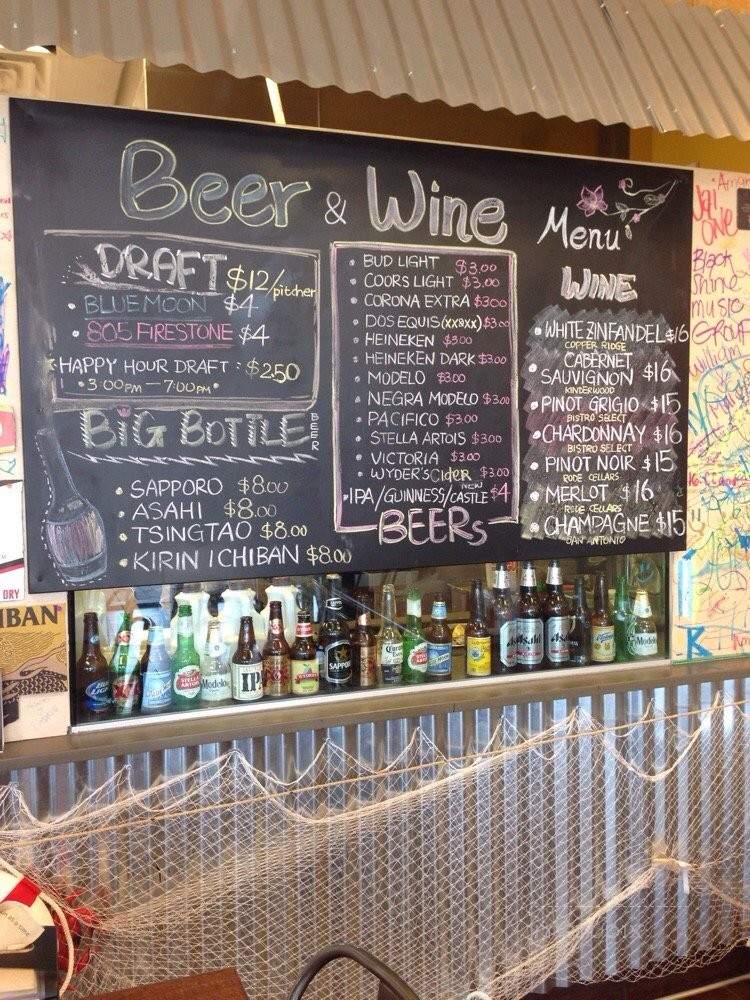 Beer & Wine
Menu
DRAFT $12/pitcher
• BLUE MOON $4
• 805 FIRESTONE $4
HAPPY HOUR DRAFT : $2.50
• 3:00PM — 7:00PM •
BIG BOTTLE BEER
• SAPPORO $8.00
• ASAHI $8.00
• TSINGTAO $8.00
• KIRIN ICHIBAN $8.00
• BUD LIGHT $3.00
• COORS LIGHT $3.00
• CORONA EXTRA $3.00
• DOS EQUIS (XX OR XX) $3.00
• HEINEKEN $3.00
• HEINEKEN DARK $3.00
• MODELO $3.00
• NEGRA MODELO $3.00
• PACIFICO $3.00
• STELLA ARTOIS $3.00
• VICTORIA $3.00
• WYDER'S CIDER $3.00
NEW
• IPA/GUINNESS/CASTLE $4
BEERS
WINE
• WHITE ZINFANDEL $16
COPPER RIDGE
• CABERNET
SAUVIGNON $16
KINDERWOOD
• PINOT GRIGIO $15
BISTRO SELECT
• CHARDONNAY $16
BISTRO SELECT
• PINOT NOIR $15
RODE CELLARS
• MERLOT $16
RODE CELLARS
• CHAMPAGNE $15
SAN ANTONIO
Jai
ONE
Black
Shine
music
Group
William
DRY
IBAN
STELLA ARTOIS
Modelo
IPA
SAPPORO
Corona
Asahi
Asahi
Modelo